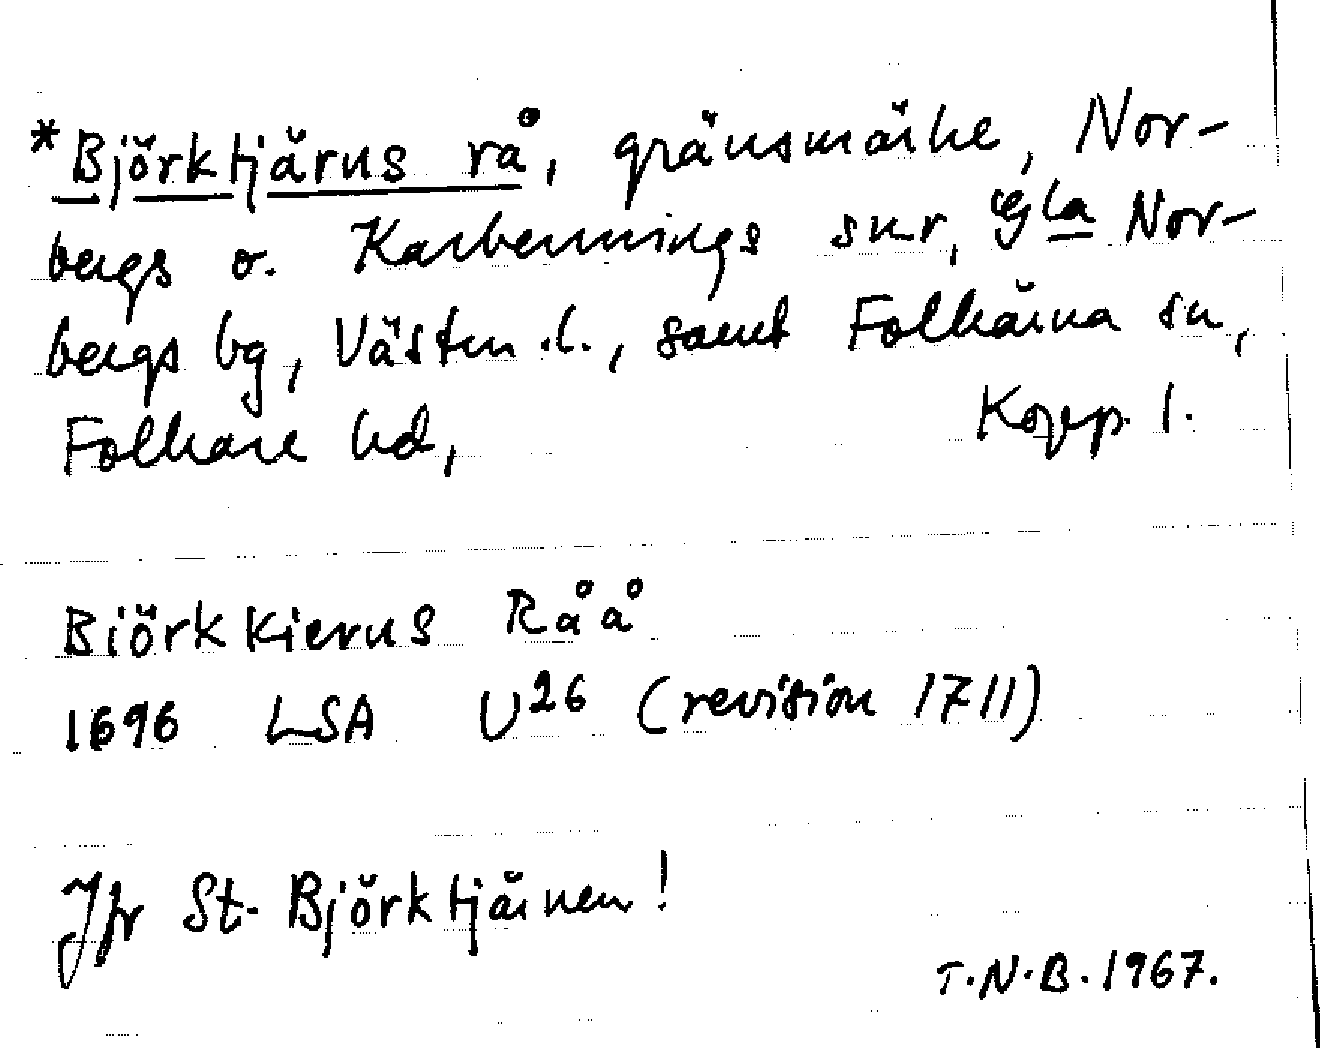 *Björktjärns rå, gränsmärke, Nor-
bergs o. Karbennings snr, Gla Nor-
bergs bg, Västm.l., samt Folkärna sn,
Folkare hd, Kopp. l.
Biörkkierns Råå
1696 LSA U26 (revision 1711)
Jfr St. Björktjärnen!
T.N.B. 1967.